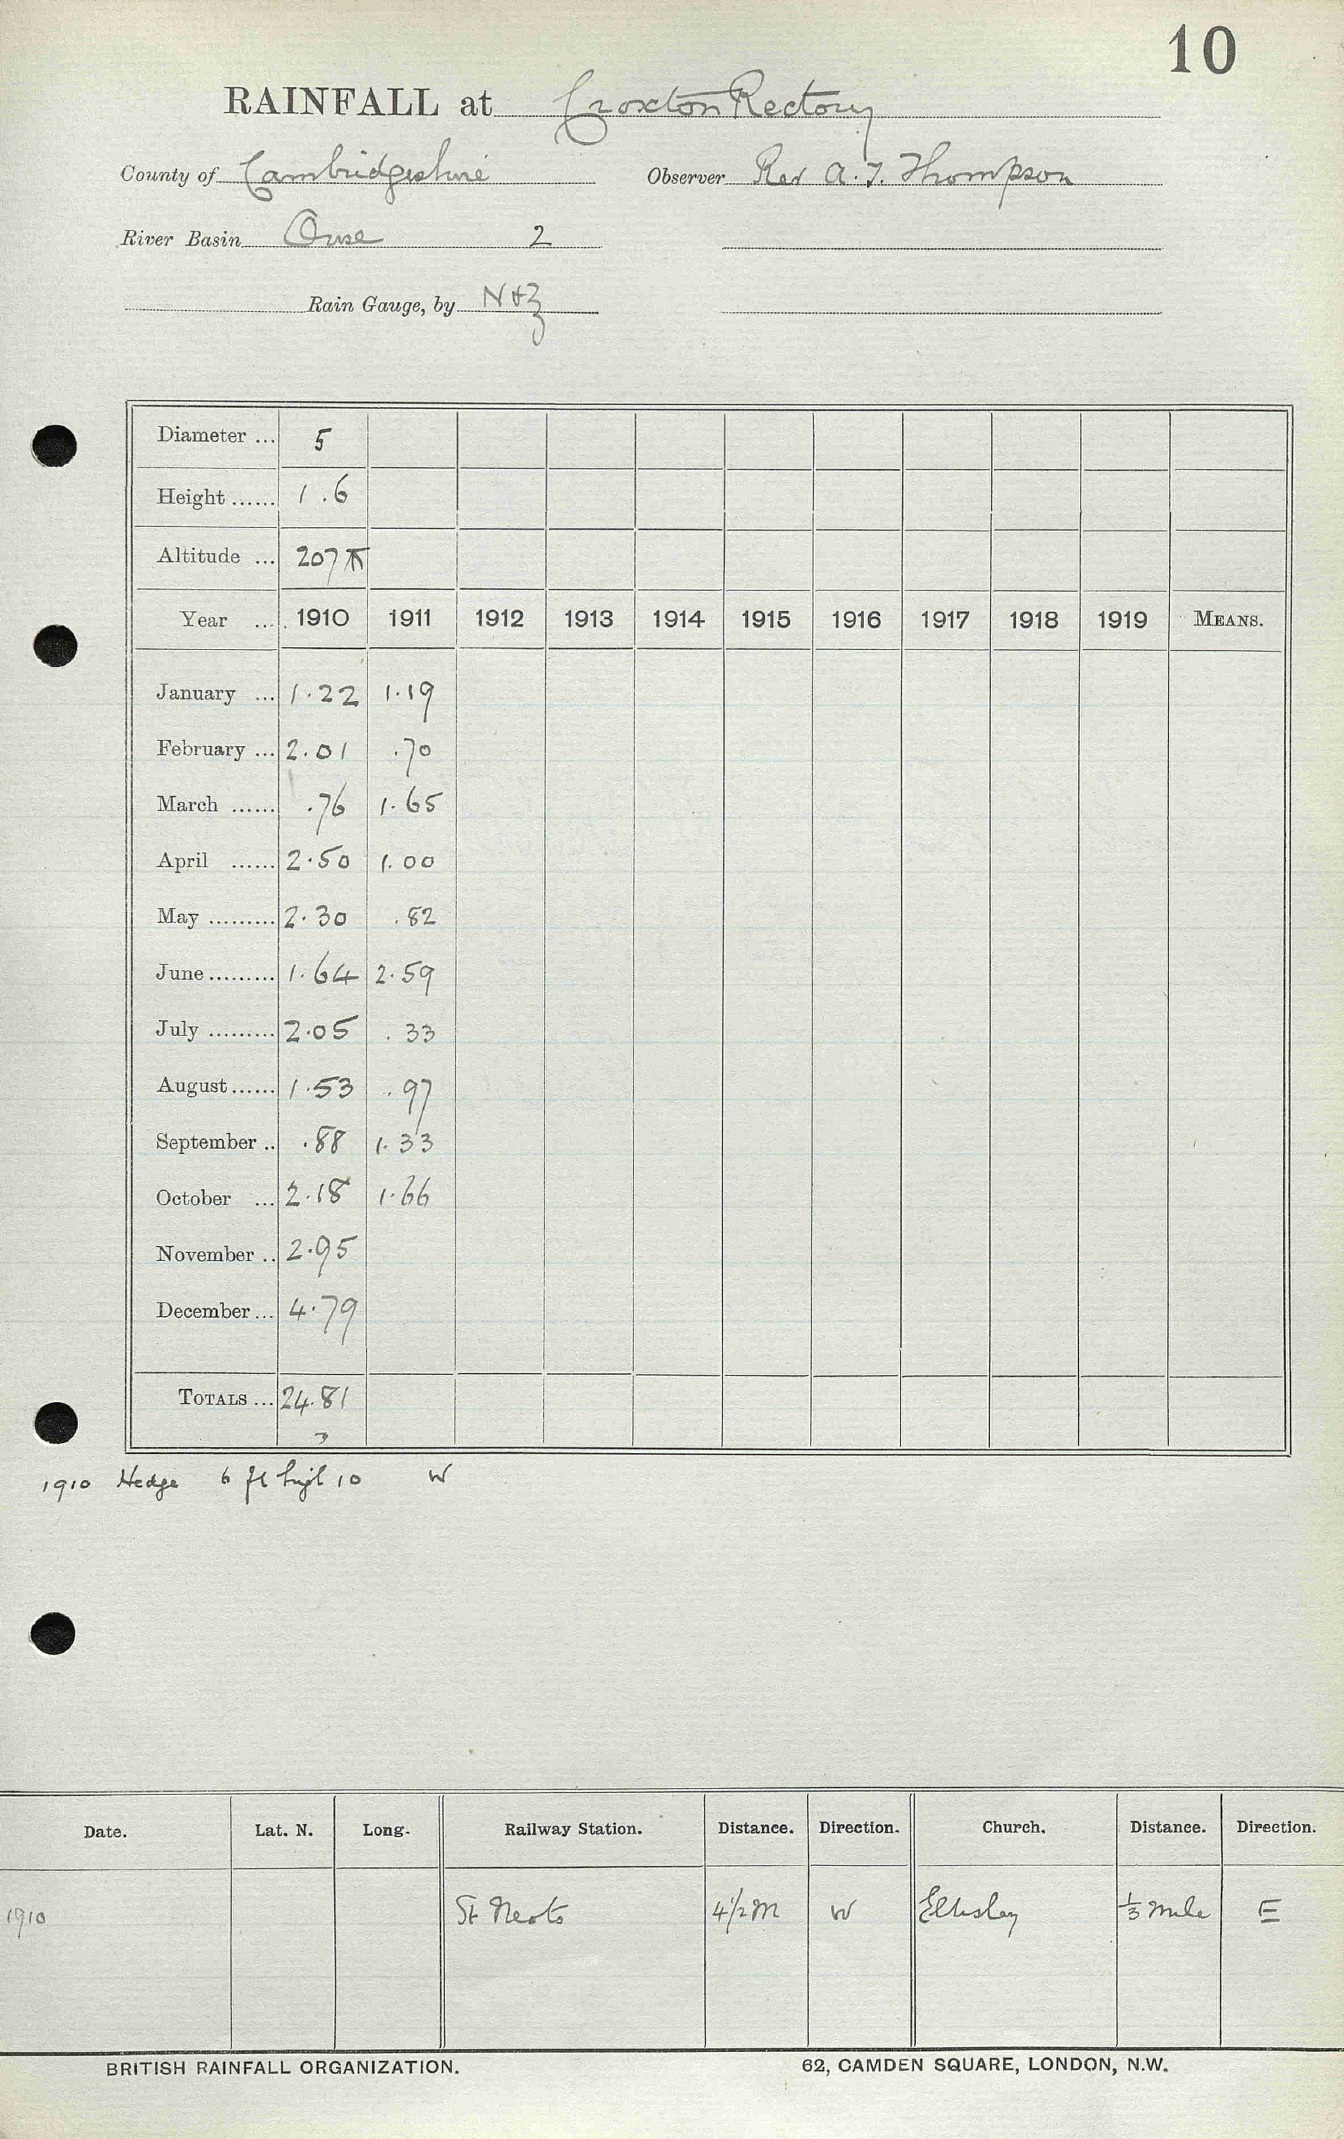 10
RAINFALL at Croxton Rectory
County of Cambridgeshire Observer Rev A. T. Thompson
River Basin Ouse 2
Rain Gauge, by N & Z
Diameter ... 5
Height ...... 1.6
Altitude ... 207
Year ... 1910 1911 1912 1913 1914 1915 1916 1917 1918 1919 MEANS.
January ... 1.22 1.19
February ... 2.01 .70
March ...... .76 1.65
April ...... 2.50 1.00
May ......... 2.30 .82
June ......... 1.64 2.59
July ......... 2.05 .33
August ...... 1.53 .97
September .. .88 1.33
October ... 2.18 1.66
November .. 2.95
December ... 4.79
TOTALS ... 24.81
1910 Hedge 6 ft high 10 W
Date. Lat. N. Long. Railway Station. Distance. Direction. Church. Distance. Direction.
1910 St Neots 4 1/2 M W Eltisley 1/3 mile E
BRITISH RAINFALL ORGANIZATION. 62, CAMDEN SQUARE, LONDON, N.W.